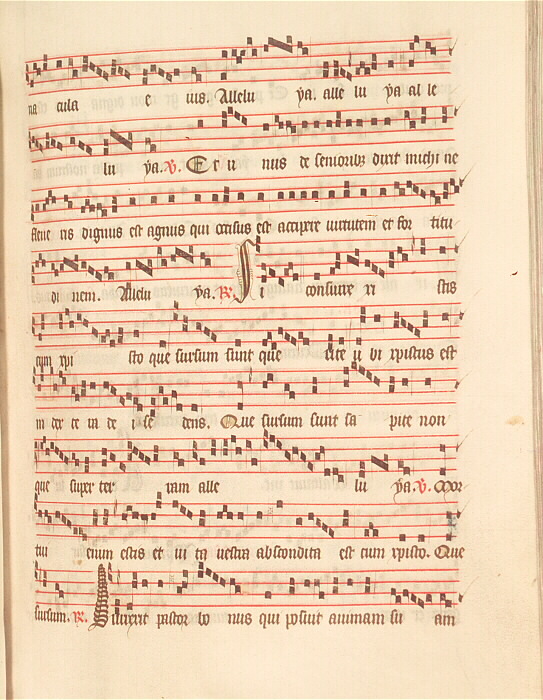 na cula e ius. Allelu ya. alle lu ya al le
lu ya. V. Et u nus de senioribz dixit michi ne
flene ris dignus est agnus qui occisus est accipere uirtutem et for titu
di nem. Allelu ya. R. Si consurre xi stis
cum xpi sto que sursum sunt que rite u bi xpistus est
in dex te ra de i se dens. Que sursum sunt sa pite non
que super ter ram alle lu ya. V. Mor
tui enim estis et ui ta uestra abscondita est cum xpisto. Que
sursum. R. Surrexit pastor bo nus qui posuit animam su am